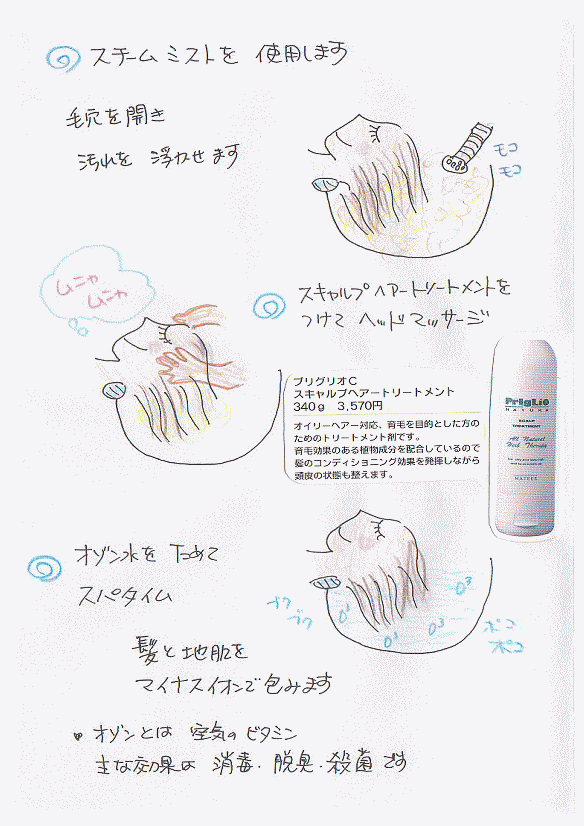 スチームミストを 使用します
毛穴を開き
汚れを 浮かせます
モコ
モコ
ムニャ
ムニャ
スキャルプヘアートリートメントを
つけて ヘッドマッサージ
プリグリオC
スキャルプヘアートリートメント
340g 3,570円
オイリーヘアー対応、育毛を目的とした方の
ためのトリートメント剤です。
育毛効果のある植物成分を配合しているので
髪のコンディショニング効果を発揮しながら
頭皮の状態も整えます。
PrigLiO
NATURE
SCALP
TREATMENT
オゾン水を ためて
スパタイム
ブク
ブク
O3
O3
O3
O3
ポコ
ポコ
髪と地肌を
マイナスイオンで包みます
オゾンとは 空気のビタミン
主な効果は 消毒・脱臭・殺菌です